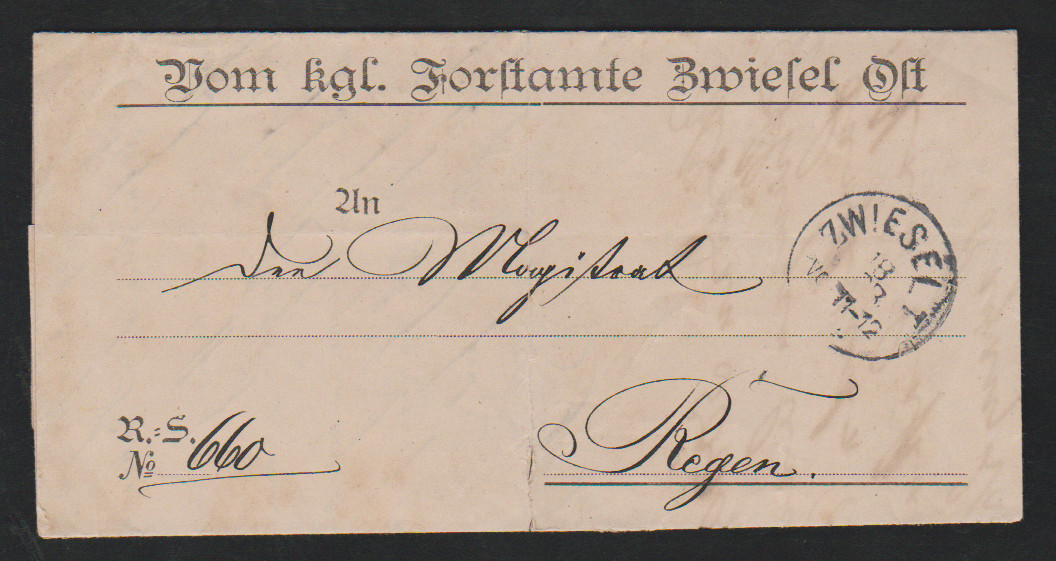 Vom kgl. Forstamte Zwiesel Ost
An
den Magistrat
ZWIESEL I
18
3
11-12
Regen.
R.=S.
No 660